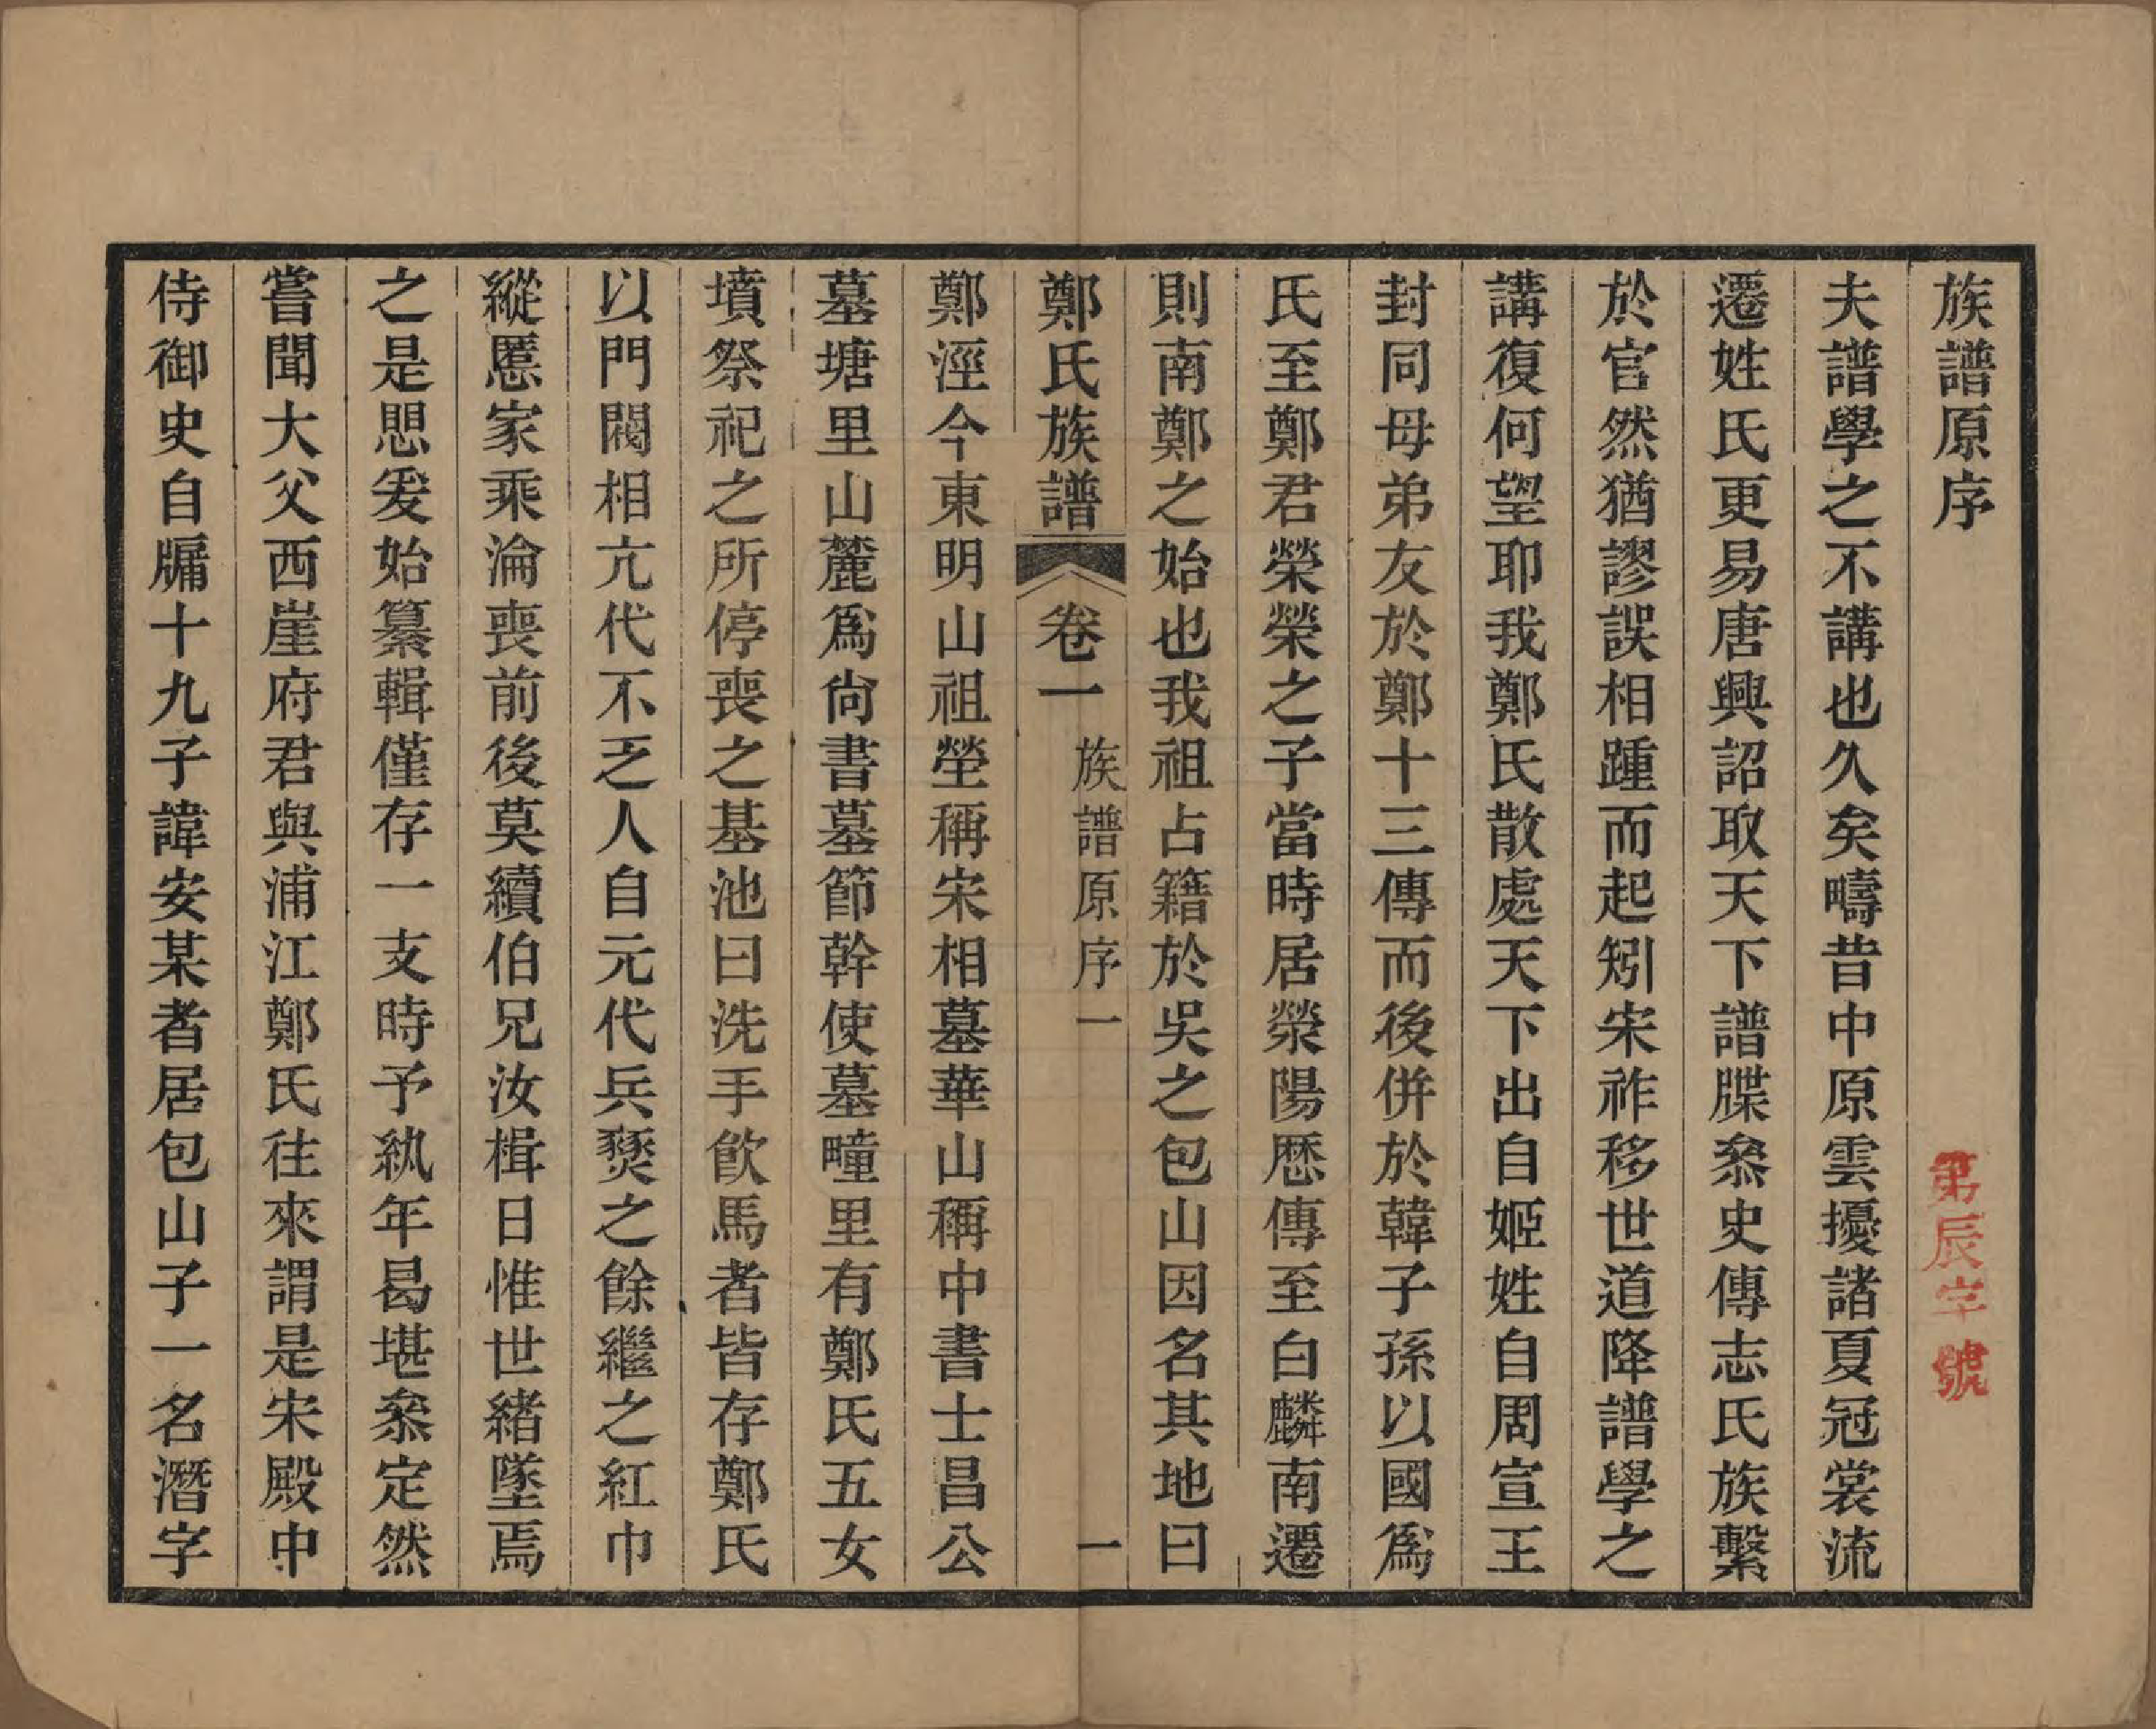 族譜原序
第辰字號
夫譜學之不講也久矣疇昔中原雲擾諸夏冠裳流
遷姓氏更易唐興詔取天下譜牒叅史傳志氏族繫
於官然猶謬誤相踵而起矧宋祚移世道降譜學之
講復何望耶我鄭氏散處天下出自姬姓自周宣王
封同母弟友於鄭十三傳而後併於韓子孫以國爲
氏至鄭君榮榮之子當時居滎陽歷傳至白麟南遷
則南鄭之始也我祖占籍於吳之包山因名其地曰
鄭氏族譜 卷一 族譜原序一 一
鄭涇今東明山祖塋稱宋相墓華山稱中書士昌公
墓塘里山麓爲尙書墓節幹使墓疃里有鄭氏五女
墳祭祀之所停喪之基池曰洗手飮馬者皆存鄭氏
以門閥相亢代不乏人自元代兵燹之餘繼之紅巾
縱慝家乘淪喪前後莫續伯兄汝楫日惟世緒墜焉
之是思爰始纂輯僅存一支時予紈年曷堪叅定然
嘗聞大父西崖府君與浦江鄭氏往來謂是宋殿中
侍御史自牖十九子諱安某者居包山子一名潛字